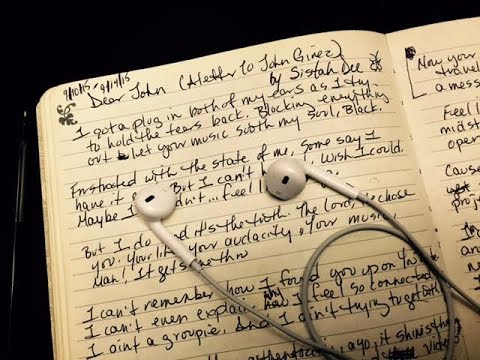 9/10/15 9/14/15
Dear John (A letter to John Givez)
by Sistah Dee
I got a plug in both of my ears as I try
to hold the tears back. Blocking everything
out & let your music sooth my Soul, Black.
Frustrated with the state of me, some say I
have it But I can't Wish I could.
Maybe I feel
But I do and it's the truth. The Lord chose
you. Your life, your audacity, your music,
Man! It gets me thro
I can't remember how I found you upon
I can't even explain why how I feel so connected
I aint a groupie. And I ain't trying to get with
ayo, it shines thr
video
Now your
travel
a mess
Feel l
midst
oper
Cause
proj
Im